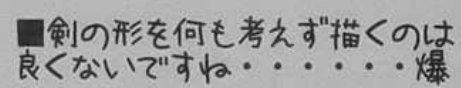 ■剣の形を何も考えず描くのは
良くないですね・・・・・・爆